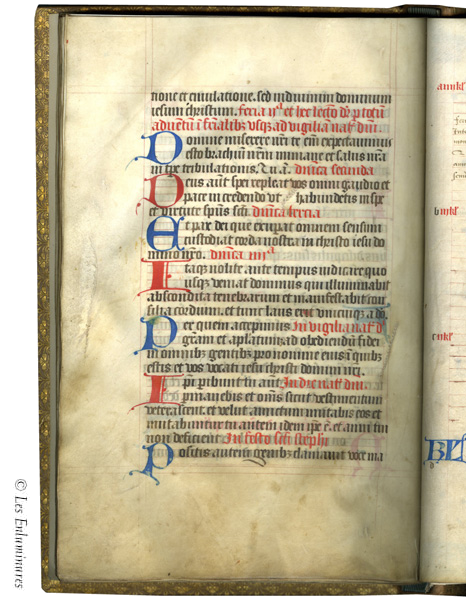 tione et emulatione. sed induimini dominum
iesum christum. feria iiª et hec lectio de
aduentu i ferialibz usqz ad vigiliam nat dni
Domine miserere nri te eni expectauimus
esto brachium nrm in mane et salus nra
in tpe tribulationis. Tu a. Dnica secunda
Deus aut spei repleat vos omni gaudio et
pace in credendo vt habundetis in spe
et virtute spus sci. Dnica tercia
Et pax dei que exuperat omnem sensum
custodiat corda nostra in christo iesu do
mino nro. Dnica iiiiª
Itaqz nolite ante tempus iudicare quo
usqz veniat dominus qui illuminabit
abscondita tenebrarum et manifestabit con
silia cordium. et tunc laus erit unicuiqz a do.
Per quem accepimus In vigilia nat d
gram et aplatum ad obediendum fidei
in omnibz gentibz pro nomine eius i quibz
estis et vos vocati iesu christi domini nri.
Ipi peribunt tu aut In die nat dni
permanebis et oms sicut vestimentum
veterascent. et velut amictum mutabis eos et
mutabuntur tu autem idem ipse es et anni tui
non deficient In festo sci stephi
Positis autem genibz clamauit voce ma
© Les Enluminures